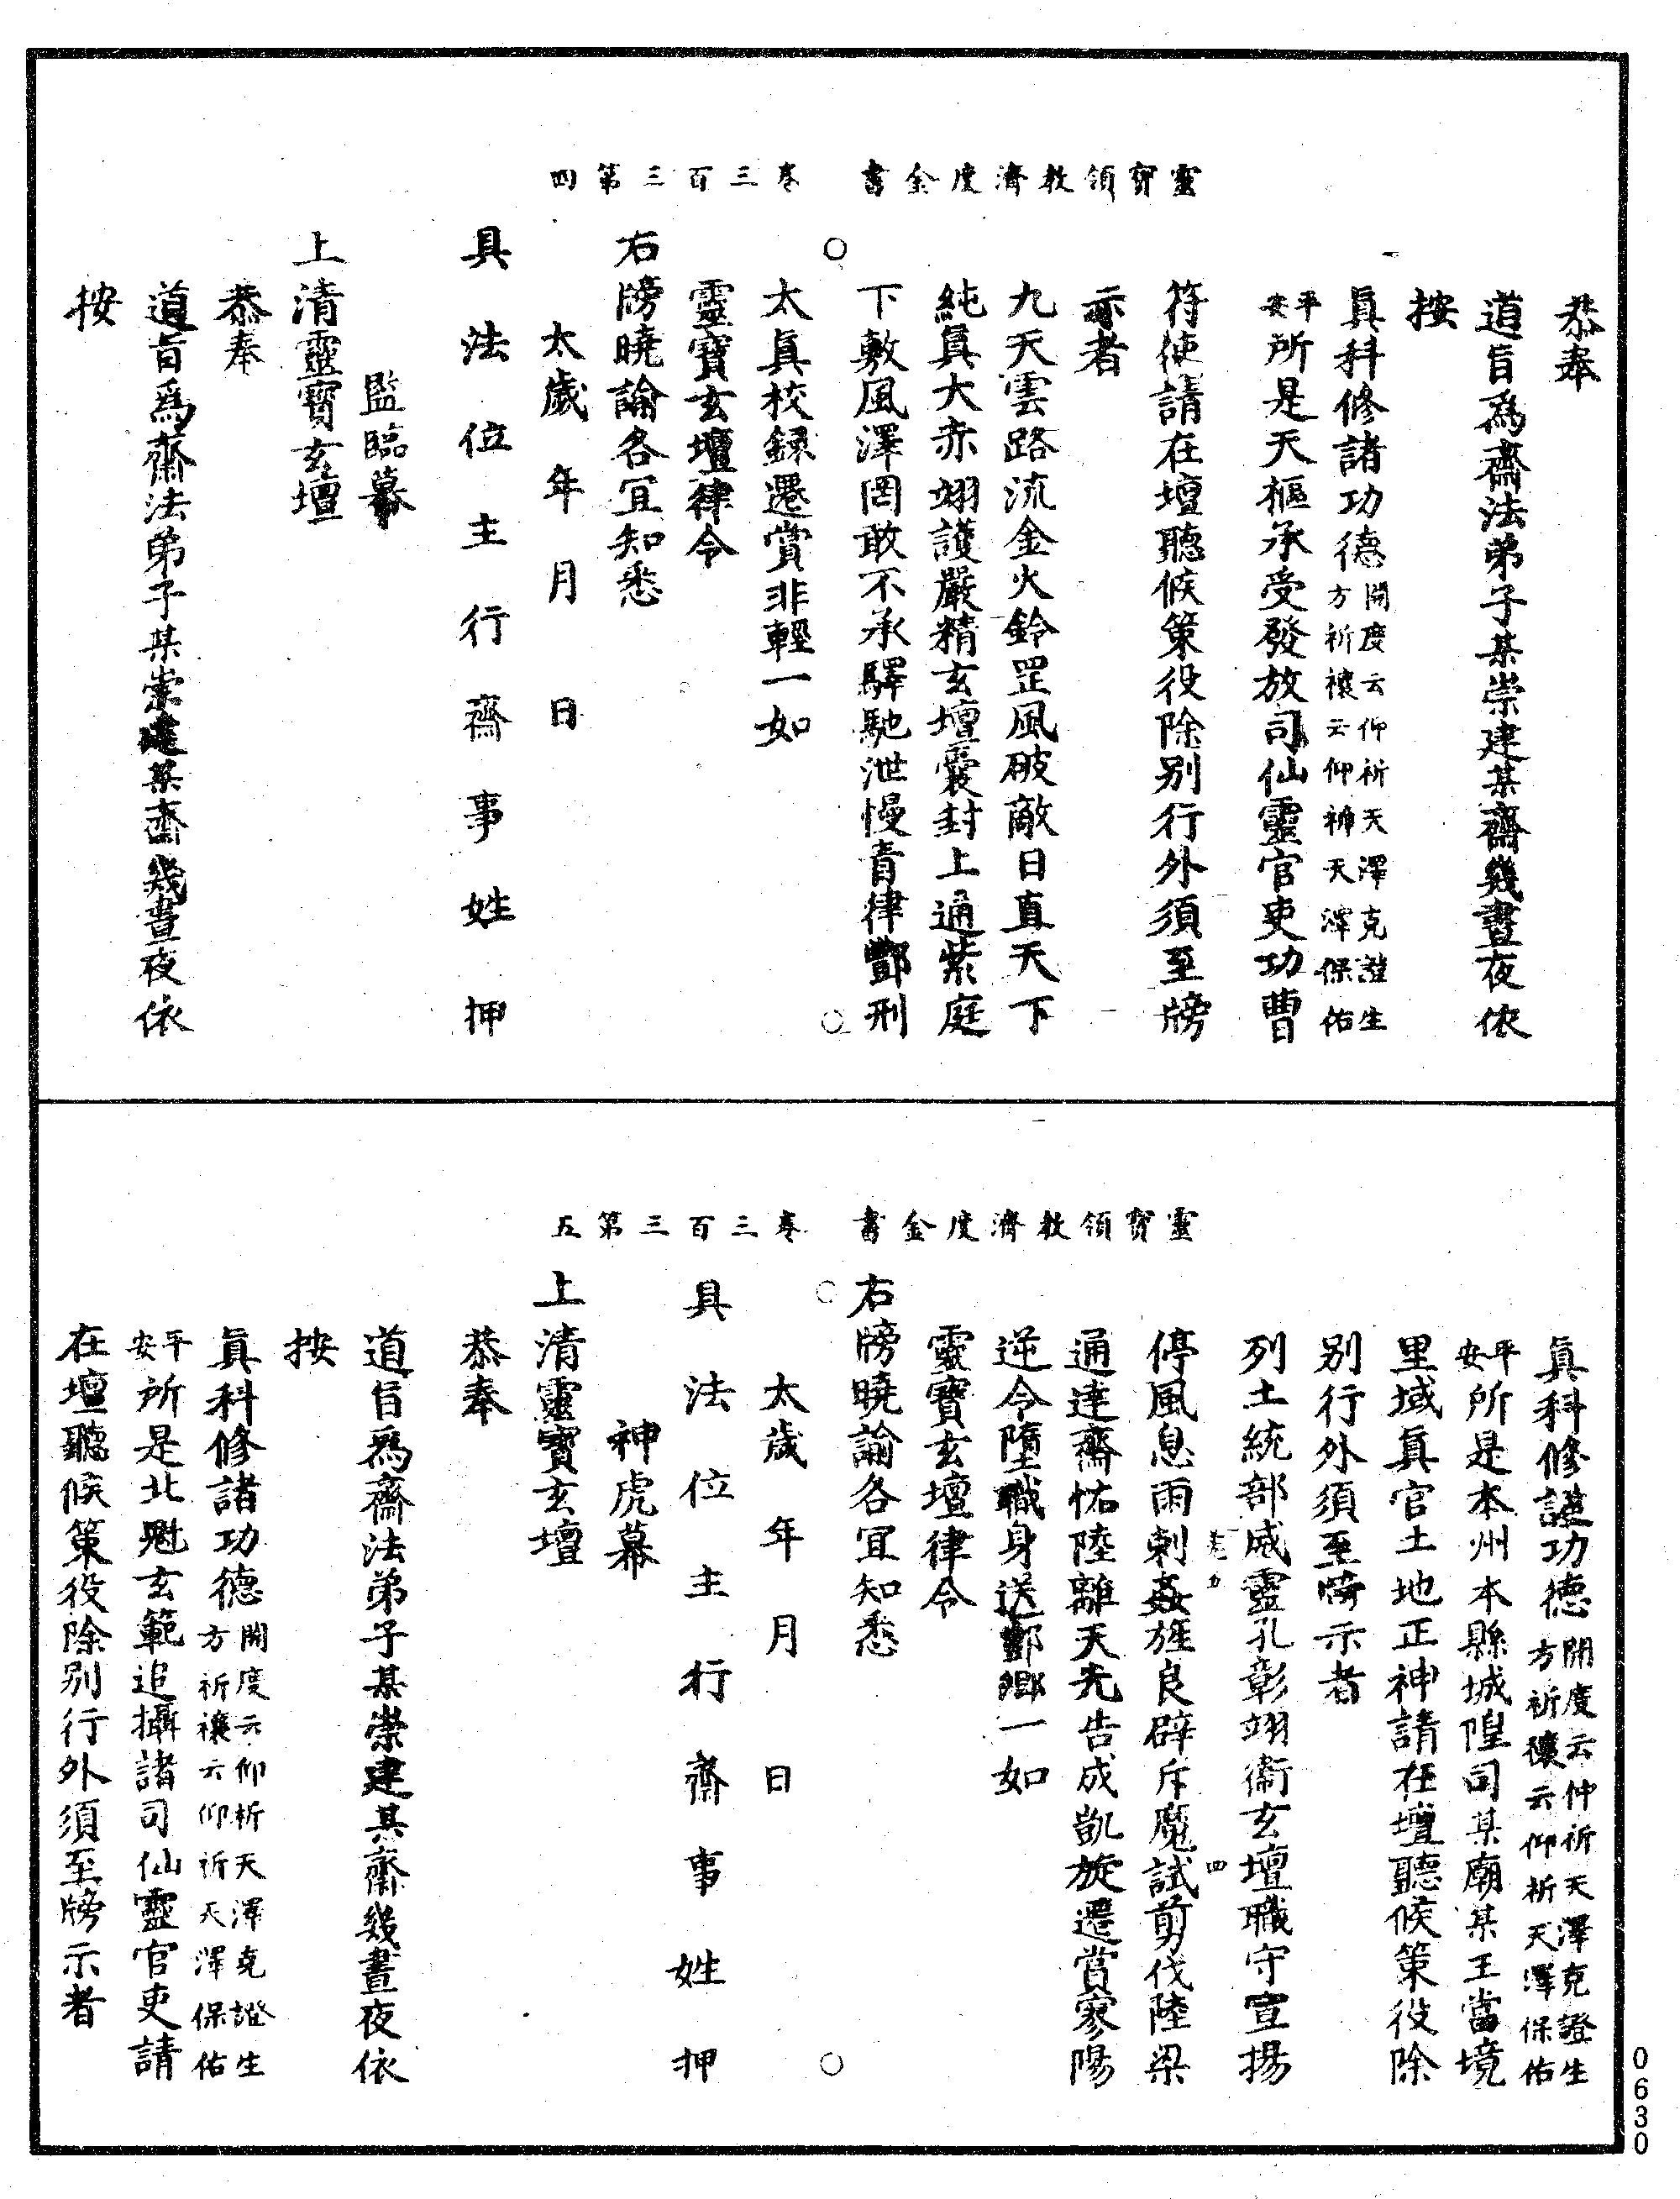 恭奉
道旨爲齋法弟子某崇建某齋幾晝夜依
按
眞科修諸功德開度云仰祈天澤克證生方祈禳云仰祈天澤保佑
平安所是天樞承受發放司仙靈官吏功曹
符使請在壇聽候策役除别行外須至牓
示者
九天雲路流金火鈴罡風破敵日直天下
純眞大赤翊護嚴精玄壇囊封上通紫庭
下敷風澤罔敢不承驛馳泄慢責律酆刑
靈寳領教濟度金書 卷三百三第四
太眞校録遷賞非輕一如
靈寳玄壇律令
右牓曉諭各宜知悉
太歲 年 月 日
具法位主行齋事姓 押
監臨幕
上清靈寳玄壇
恭奉
道旨爲齋法弟子某崇建某齋幾晝夜依
按
眞科修諸功德開度云仰祈天澤克證生方祈禳云仰祈天澤保佑
平安所是本州本縣城隍司某廟某王當境
里域眞官土地正神請在壇聽候策役除
别行外須至牓示者
列土統部威靈孔彰翊衞玄壇職守宣揚
四
停風息雨剌姦旌良辟斥魔試剪伐陸梁
通達齋怙陸離天光告成凱旋遷賞寥陽
逆令墮職身送酆鄉一如
靈寳玄壇律令
右牓曉諭各宜知悉
靈寳領教濟度金書 卷三百三第五
太歲 年 月 日
具法位主行齋事姓 押
神虎幕
上清靈寳玄壇
恭奉
道旨爲齋法弟子某崇建某齋幾晝夜依
按
眞科修諸功德開度云仰祈天澤克證生方祈禳云仰祈天澤保佑
平安所是北魁玄範追攝諸司仙靈官吏請
在壇聽候策役除别行外須至牓示者
0630